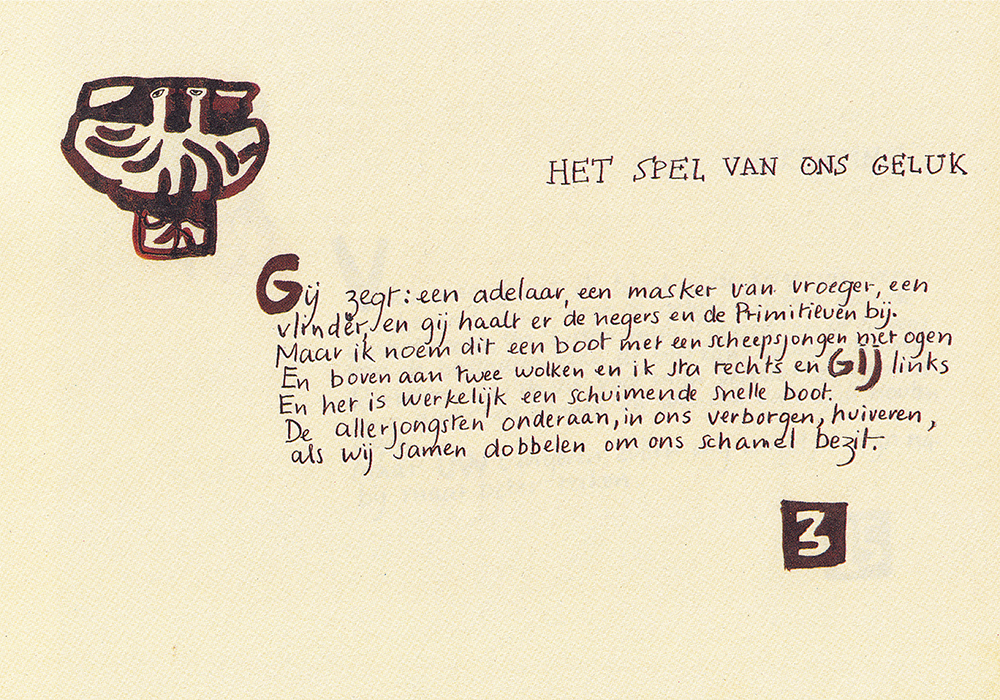 HET SPEL VAN ONS GELUK
Gij zegt: een adelaar, een masker van vroeger, een
vlinder, en gij haalt er de negers en de Primitieven bij.
Maar ik noem dit een boot met een scheepsjongen met ogen
En bovenaan twee wolken en ik sta rechts en GIJ links
En het is werkelijk een schuimende snelle boot.
De allerjongsten onderaan, in ons verborgen, huiveren,
als wij samen dobbelen om ons schamel bezit.
3